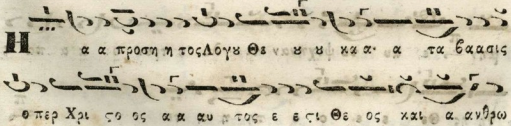 Η α α προση η τος Λογου Θε ου υ και α α τα βα ασις
ο περ Χρι στο ος α α αυ τος ε ε στι Θε ος και α ανθρω